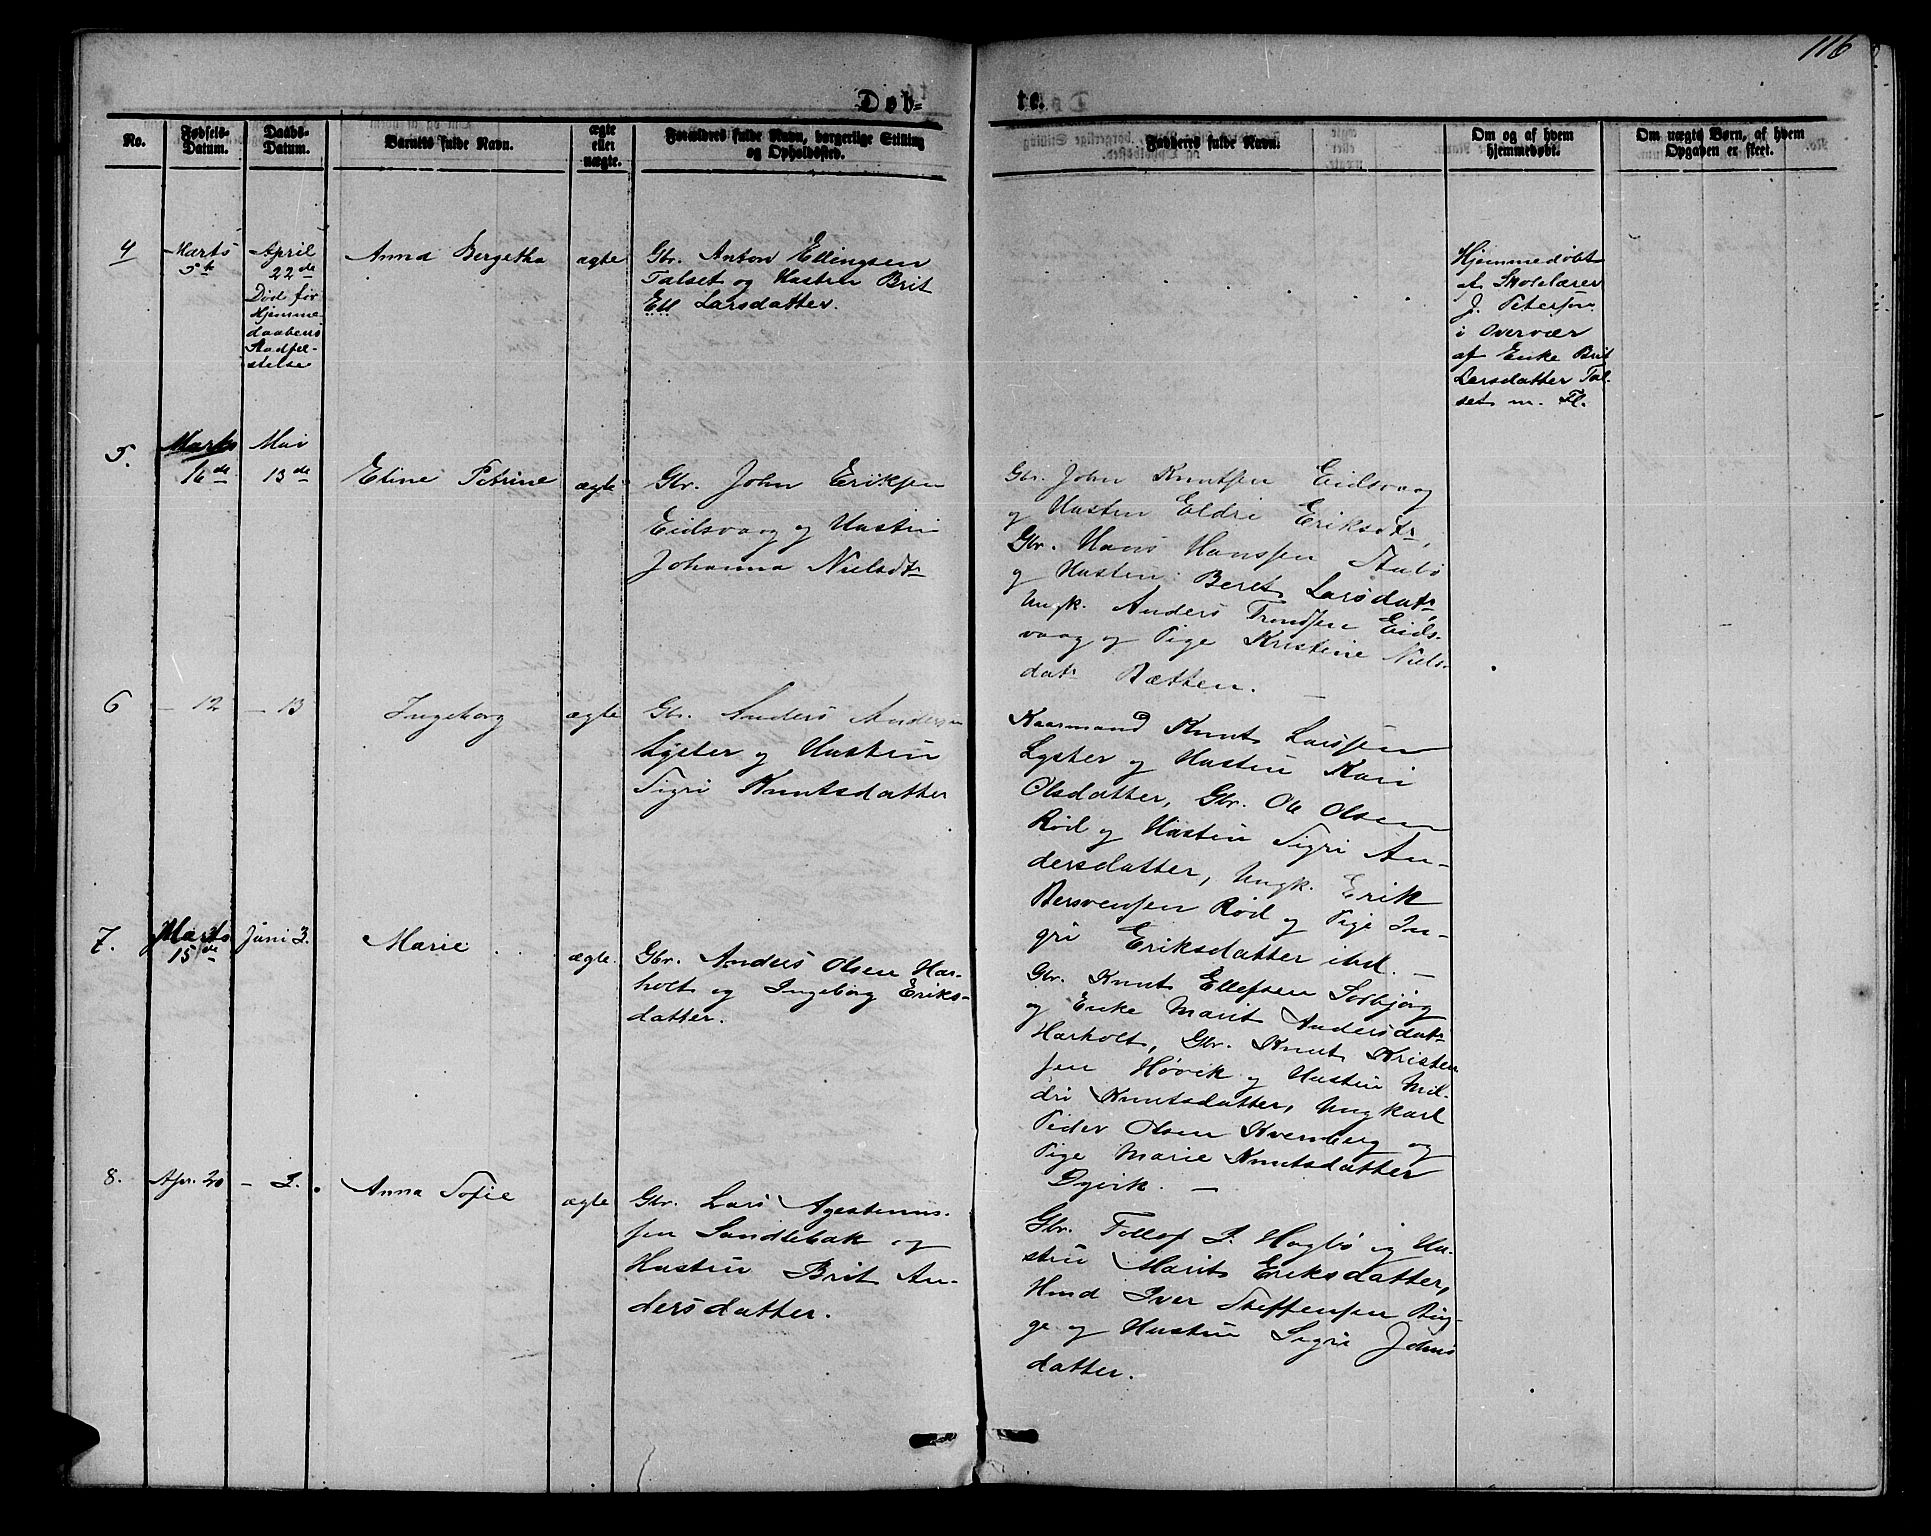 116
Døb-
te.
No.
Fødsels-
Datum.
Daabs-
Datum.
Barnets fulde Navn.
ægte
eller
uægte.
Forældres fulde Navn, borgerlige Stilling
og Opholdssted.
Faddernes fulde Navn.
Om og af hvem
hjemmedøbt.
Om uægte Børn, af hvem
Opgaven er skeet.
4
Marts
5te
April
22de
Død før
Hjemme
daabens
Stadfæ-
stelse
Anna Bergetha
ægte
Gbr. Anton Ellingsen
Talset og Hustru Brit
Ell Larsdatter.
Hjemmedøbt
af Skolelærer
J. Petersen
i Overvær
af Enke Brit
Larsdatter Tal-
set m. Fl.
5.
Marts
16de
Mai
13de
Eline Petrine
ægte
Gbr. John Eriksen
Eidsvaag og Hustru
Johanna Nielsdtr
Gbr. John Knutsen Eidsvaag
og Hustru Eldri Eriksdtr,
Gbr. Hans Hanssen Stubø
og Hustru Beret Larsdatr,
Ungk. Anders Trondsen Eids-
vaag og Pige Kristine Niels-
datr Rætten. —
6
— 12
— 13
Ingeborg
ægte
Gbr. Anders Andersen
Lyster og Hustru
Sigri Knutsdatter
Kaarmand Knut Larssen
Lyster og Hustru Kari
Olsdatter, Gbr. Ole Olsen
Rød og Hustru Sigri An-
dersdatter, Ungk. Erik
Bersvensen Rød og Pige In-
gri Eriksdatter ibd. —
7.
Marts
15de
Juni 3.
Marie
ægte.
Gbr. Anders Olsen Har-
holt og Ingeborg Eriks-
datter.
Gbr. Knut Ellefsen Solbjørg
og Enke Marit Andersdatr
Harholt, Gbr. Knut Kristen
sen Høvik og Hustru Mil-
dri Knutsdatter, Ungkarl
Peder Olsen Kvernberg og
Pige Marie Knutsdatter
Dyvik. —
8.
Apr. 20
— 3.
Anna Sofie
ægte
Gbr. Lars Agestinus-
sen Sandlebak og
Hustru Brit An-
dersdatter.
Gbr. Tollof I. Hagbø og Hu-
stru Marit Eriksdatter,
Hmd Iver Steffensen Bug-
ge og Hustru Sigri Johns
datter.